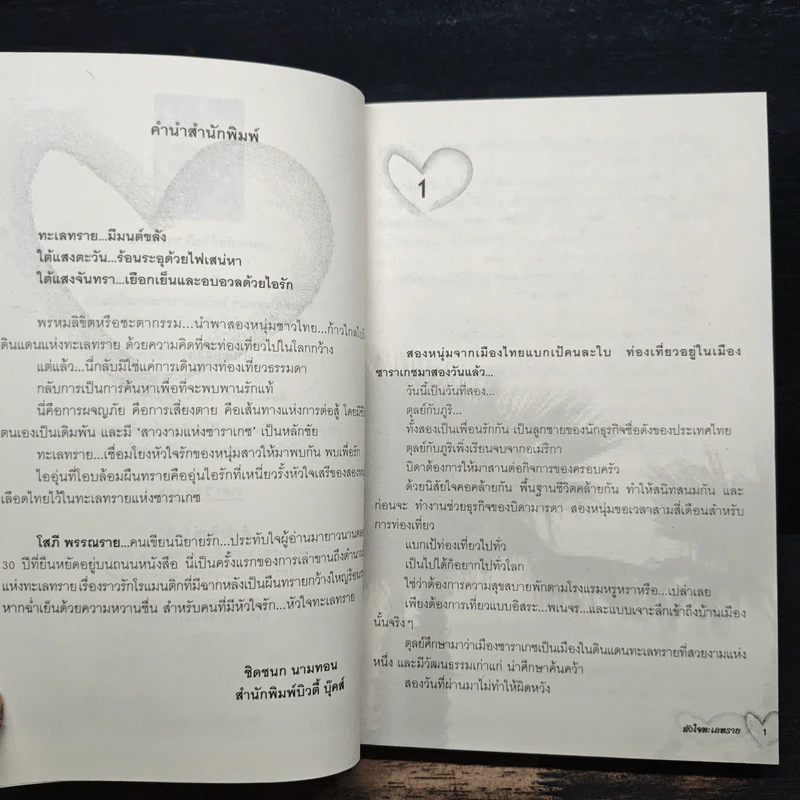 คำนำสำนักพิมพ์
ทะเลทราย...มีมนต์ขลัง
ใต้แสงตะวัน...ร้อนระอุด้วยไฟเสน่หา
ใต้แสงจันทรา...เยือกเย็นและอบอวลด้วยไอรัก
พรหมลิขิตหรือชะตากรรม...นำพาสองหนุ่มชาวไทย...ก้าวไกลไปใน
ดินแดนแห่งทะเลทราย ด้วยความคิดที่จะท่องเที่ยวไปในโลกกว้าง
แต่แล้ว...นี่กลับมิใช่แค่การเดินทางท่องเที่ยวธรรมดา
กลับการเป็นการค้นหาเพื่อที่จะพบพานรักแท้
นี่คือการผจญภัย คือการเสี่ยงตาย คือเส้นทางแห่งการต่อสู้ โดยมีชีวิต
ตนเองเป็นเดิมพัน และมี ‘สาวงามแห่งซาราเกซ’ เป็นหลักชัย
ทะเลทราย...เชื่อมโยงหัวใจรักของหนุ่มสาวให้มาพบกัน พบเพื่อรัก
ไออุ่นที่โอบล้อมผืนทรายคืออุ่นไอรักที่เหนี่ยวรั้งหัวใจเสรีของสอง
เลือดไทยไว้ในทะเลทรายแห่งซาราเกซ
โสภี พรรณราย...คนเขียนนิยายรัก...ประทับใจผู้อ่านมายาวนาน
30 ปีที่ยืนหยัดอยู่บนถนนหนังสือ นี่เป็นครั้งแรกของการเล่าขานถึงตำนาน
แห่งทะเลทรายเรื่องราวรักโรแมนติกที่มีฉากหลังเป็นผืนทรายกว้างใหญ่ร้อนระอุ
หากฉ่ำเย็นด้วยความหวานชื่น สำหรับคนที่มีหัวใจรัก...หัวใจทะเลทราย
ชิดชนก นามทอน
สำนักพิมพ์บิวตี้ บุ๊คส์
1
สองหนุ่มจากเมืองไทยแบกเป้คนละใบ ท่องเที่ยวอยู่ในเมือง
ซาราเกซมาสองวันแล้ว...
วันนี้เป็นวันที่สอง...
ตุลย์กับภูริ...
ทั้งสองเป็นเพื่อนรักกัน เป็นลูกชายของนักธุรกิจชื่อดังของประเทศไทย
ตุลย์กับภูริเพิ่งเรียนจบจากอเมริกา
บิดาต้องการให้มาสานต่อกิจการของครอบครัว
ด้วยนิสัยใจคอคล้ายกัน พื้นฐานชีวิตคล้ายกัน ทำให้สนิทสนมกัน และ
ก่อนจะ ทำงานช่วยธุรกิจของบิดามารดา สองหนุ่มขอเวลาสามสี่เดือนสำหรับ
การท่องเที่ยว
แบกเป้ท่องเที่ยวไปทั่ว
เป็นไปได้ก็อยากไปทั่วโลก
ใช่ว่าต้องการความสุขสบายพักตามโรงแรมหรูหราหรือ...เปล่าเลย
เพียงต้องการเที่ยวแบบอิสระ...พเนจร...และแบบเจาะลึกเข้าถึงบ้านเมือง
นั้นจริงๆ
ตุลย์ศึกษามาว่าเมืองซาราเกซเป็นเมืองในดินแดนทะเลทรายที่สวยงามแห่ง
หนึ่ง และมีวัฒนธรรมเก่าแก่ น่าศึกษาค้นคว้า
สองวันที่ผ่านมาไม่ทำให้ผิดหวัง
หัวใจทะเลทราย 1